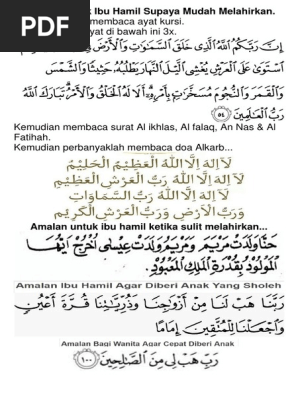 PDF
k Ibu Hamil Supaya Mudah Melahirkan.
embaca ayat kursi.
yat di bawah ini 3x.
إِنَّ رَبَّكُمُ اللَّهُ الَّذِي خَلَقَ السَّمَاوَاتِ وَالْأَرْضَ
اسْتَوَىٰ عَلَى الْعَرْشِ يُغْشِي اللَّيْلَ النَّهَارَ يَطْلُبُهُ حَثِيثًا وَالشَّمْسَ
وَالْقَمَرَ وَالنُّجُومَ مُسَخَّرَاتٍ بِأَمْرِهِ أَلَا لَهُ الْخَلْقُ وَالْأَمْرُ تَبَارَكَ اللَّهُ
رَبُّ الْعَالَمِينَ ٥٤
Kemudian membaca surat Al ikhlas, Al falaq, An Nas & Al
Fatihah.
Kemudian perbanyaklah membaca doa Alkarb...
لَا إِلَهَ إِلَّا اللَّهُ الْعَظِيمُ الْحَلِيْمُ
لَا إِلَهَ إِلَّا اللَّهُ رَبُّ الْعَرْشِ الْعَظِيْمِ
لَا إِلَهَ إِلَّا اللَّهُ رَبُّ السَّمَاوَاتِ
وَرَبُّ الْأَرْضِ وَرَبُّ الْعَرْشِ الْكَرِيْمِ
Amalan untuk ibu hamil ketika sulit melahirkan...
حَنَّا وَلَدَتْ مَرْيَمَ وَمَرْيَمُ وَلَدَتْ عِيسَى اُخْرُجْ اَيُّهَا
الْمَوْلُودُ بِقُدْرَةِ الْمَلِكِ الْمَعْبُودِ.
Amalan Ibu Hamil Agar Diberi Anak Yang Sholeh
رَبَّنَا هَبْ لَنَا مِنْ أَزْوَاجِنَا وَذُرِّيَّاتِنَا قُرَّةَ أَعْيُنٍ
وَاجْعَلْنَا لِلْمُتَّقِينَ إِمَامًا
Amalan Bagi Wanita Agar Cepat Diberi Anak
رَبِّ هَبْ لِي مِنَ الصَّالِحِينَ ١٠٠